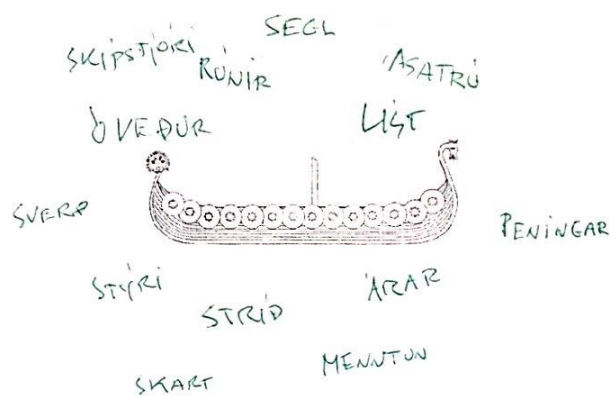 SEGL
SKIPSTJÓRI
RÚNIR
ÁSATRÚ
ÓVEÐUR
LIST
SVERÐ
PENINGAR
STÝRI
ÁRAR
STRÍÐ
MENNTUN
SKART